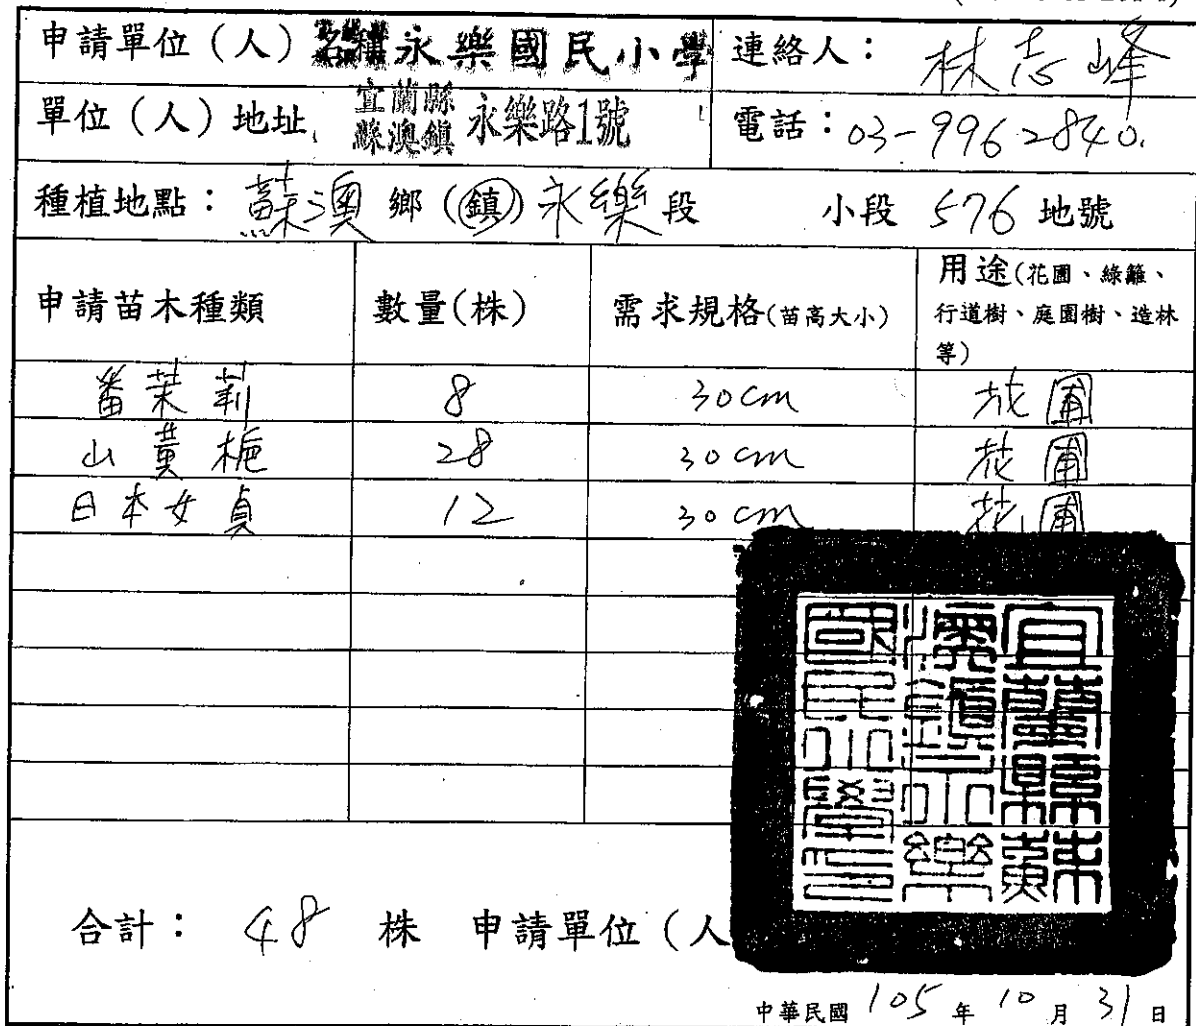 申請單位（人）名稱 永樂國民小學 連絡人： 林志峰
單位（人）地址 宜蘭縣蘇澳鎮 永樂路1號 電話：03-9962840.
種植地點：蘇澳 鄉（鎮）永樂 段 小段 576 地號
申請苗木種類 數量(株) 需求規格(苗高大小) 用途(花圃、綠籬、行道樹、庭園樹、造林等)
番茉莉 8 30cm 花圃
山黃梔 28 30cm 花圃
日本女貞 12 30cm 花圃
宜蘭縣蘇澳鎮永樂國民小學印
合計： 48 株 申請單位（人
中華民國 105 年 10 月 31 日